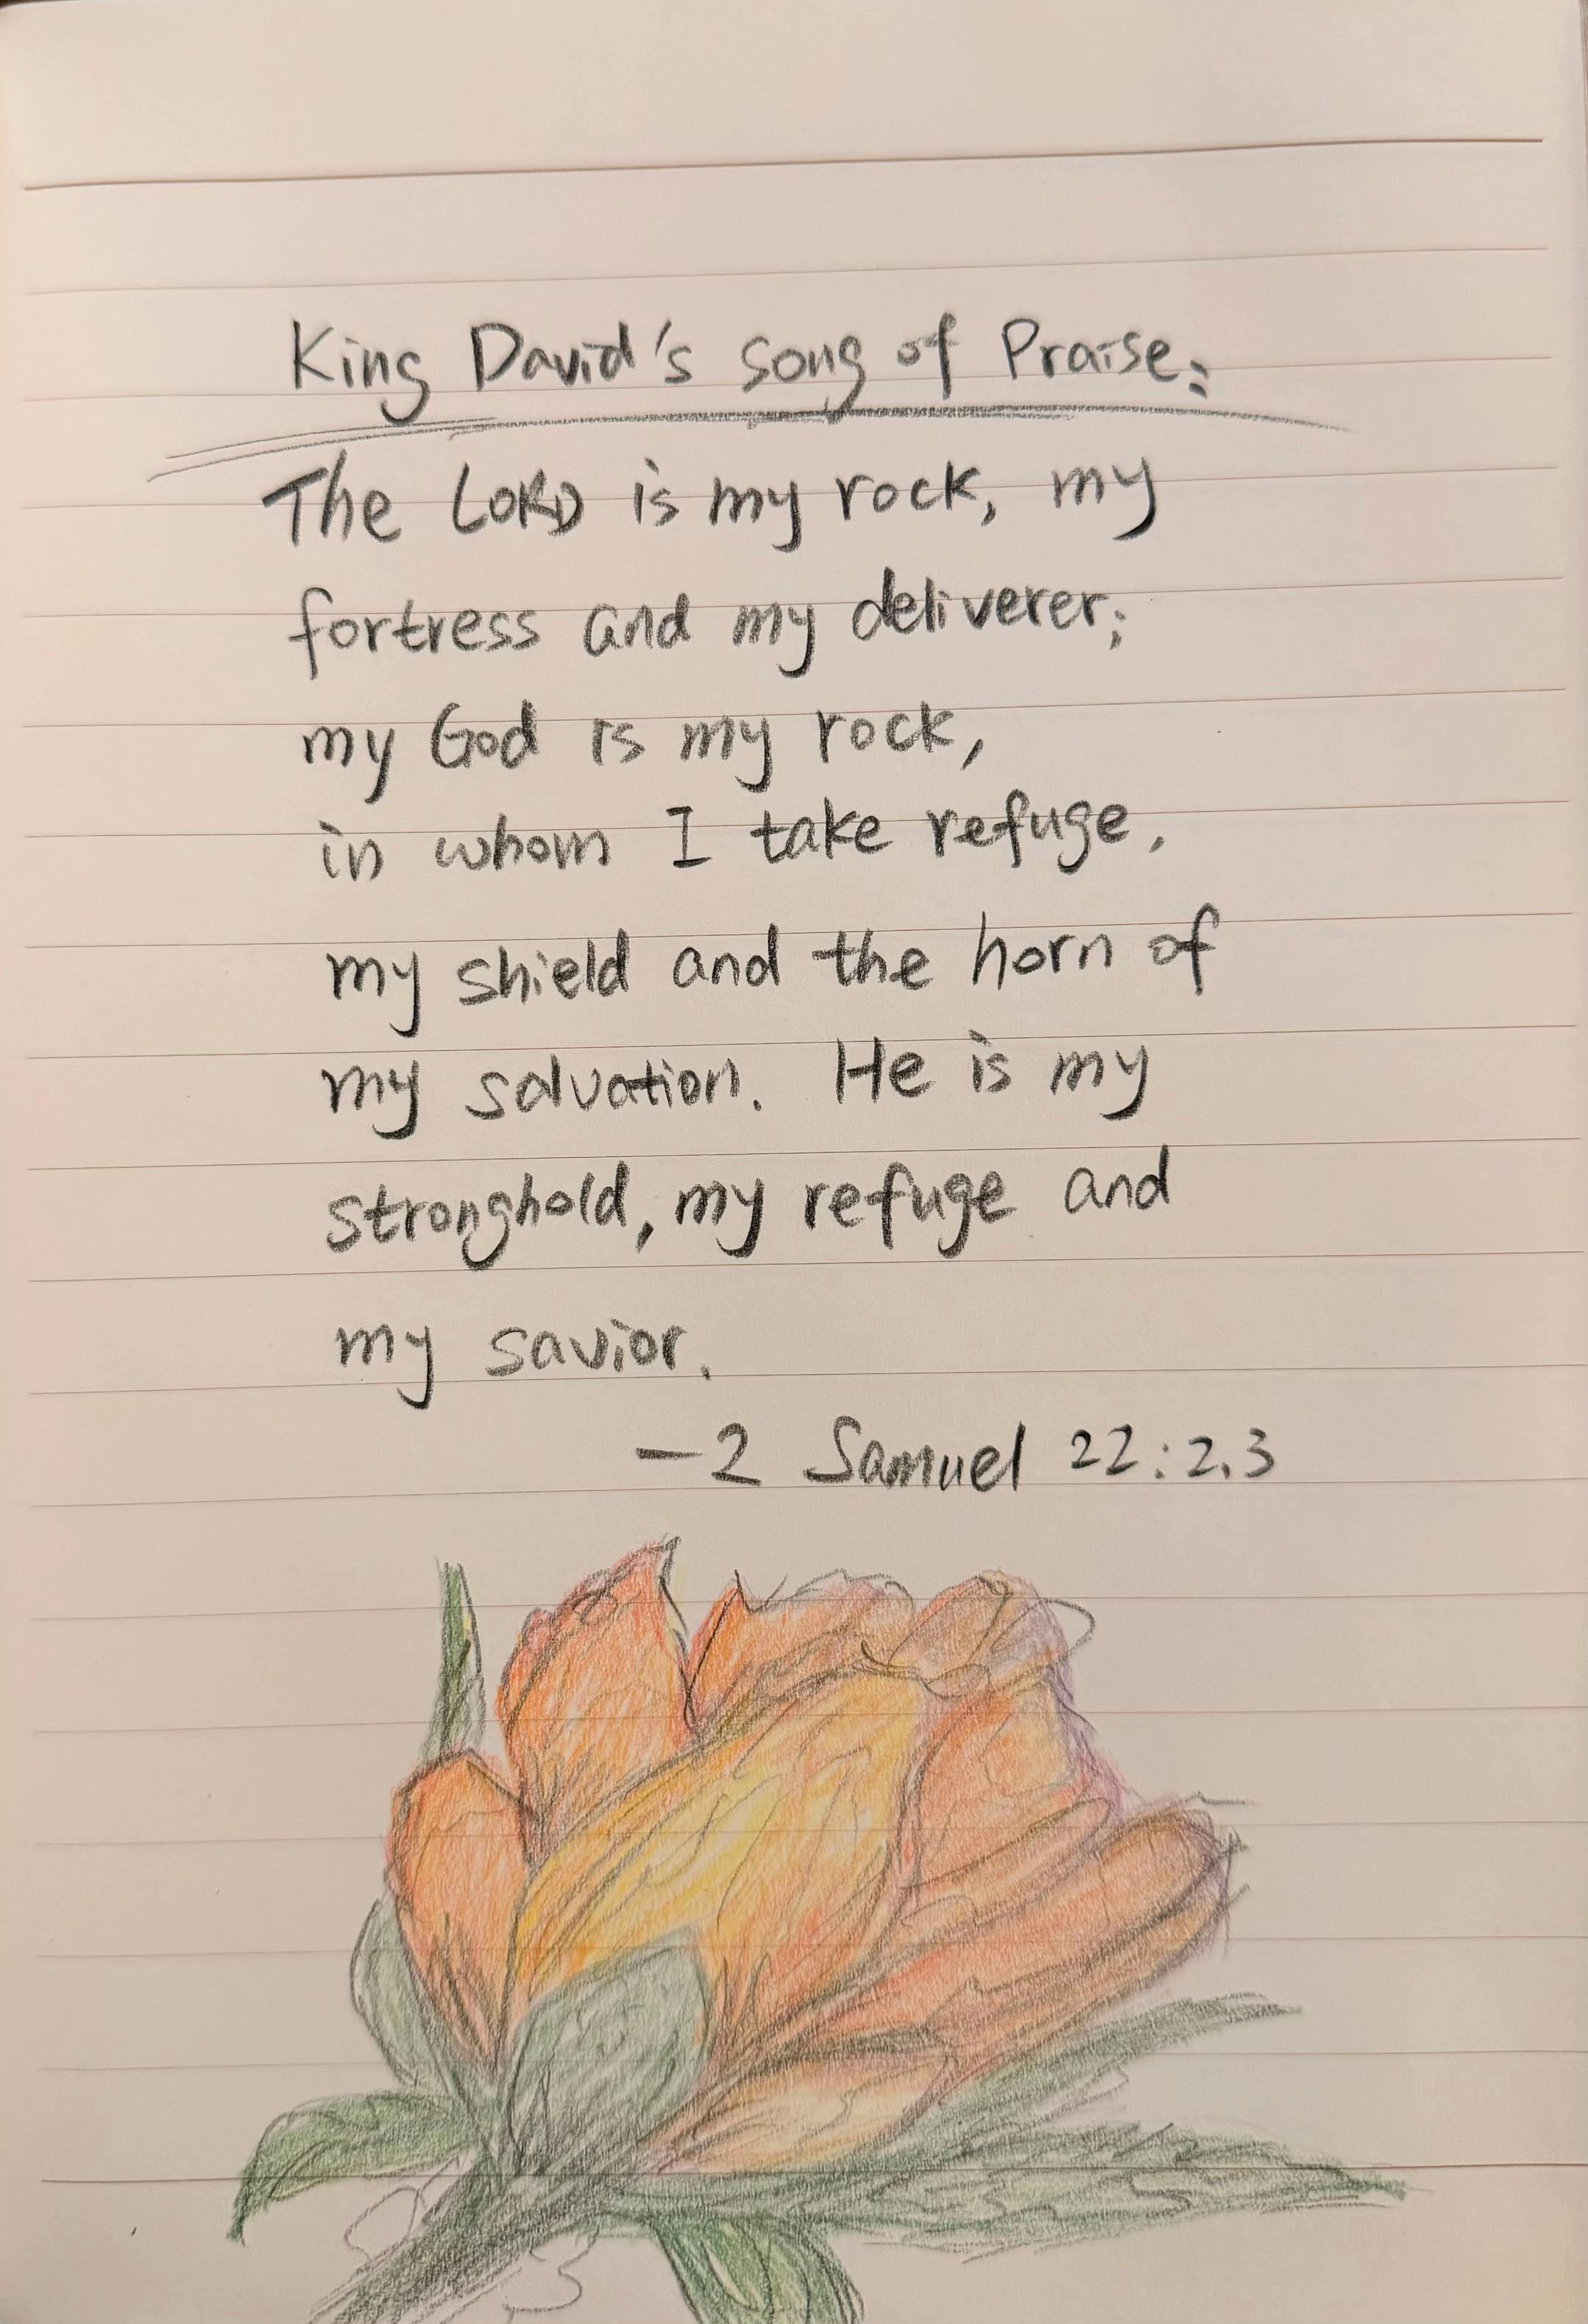 King David's song of Praise:
The LORD is my rock, my
fortress and my deliverer;
my God is my rock,
in whom I take refuge,
my shield and the horn of
my salvation. He is my
stronghold, my refuge and
my savior.
-2 Samuel 22:2,3